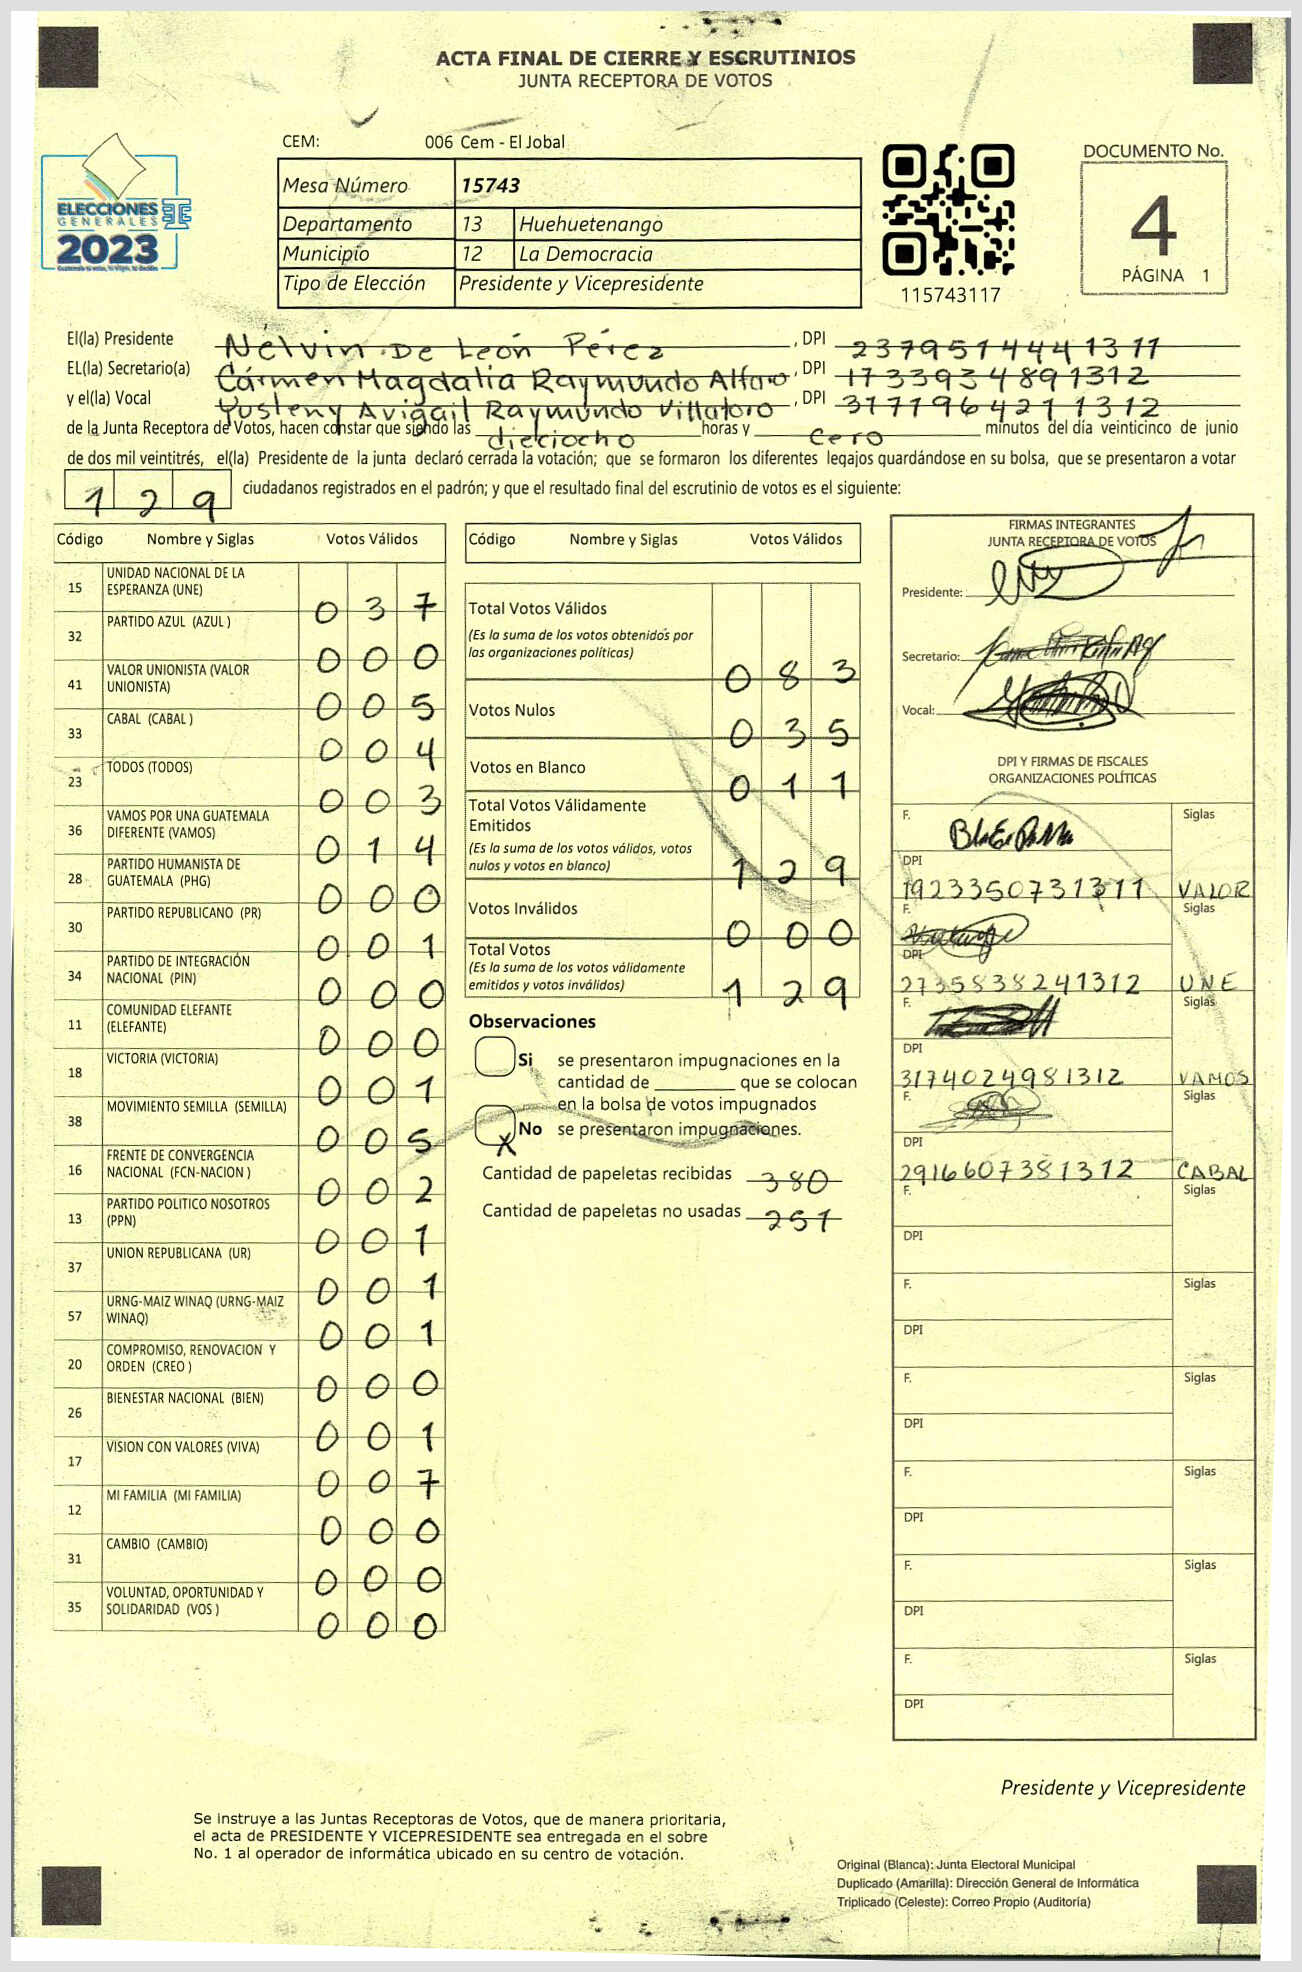 ACTA FINAL DE CIERRE Y ESCRUTINIOS
JUNTA RECEPTORA DE VOTOS
CEM: 006 Cem - El Jobal
Mesa Número 15743
Departamento 13 Huehuetenango
Municipio 12 La Democracia
Tipo de Elección Presidente y Vicepresidente
ELECCIONES
GENERALES
2023
115743117
DOCUMENTO No.
4
PÁGINA 1
El(la) Presidente Nélvin De León Pérez, DPI 2379514441311
EL(la) Secretario(a) Cármen Magdalia Raymundo Alfaro, DPI 1733934891312
y el(la) Vocal Yusleny Avigail Raymundo Villatoro, DPI 3171964211312
de la Junta Receptora de Votos, hacen constar que siendo las dieciocho horas y cero minutos del día veinticinco de junio
de dos mil veintitrés, el(la) Presidente de la junta declaró cerrada la votación; que se formaron los diferentes legajos guardándose en su bolsa, que se presentaron a votar
129 ciudadanos registrados en el padrón; y que el resultado final del escrutinio de votos es el siguiente:
Código Nombre y Siglas Votos Válidos
15 UNIDAD NACIONAL DE LA ESPERANZA (UNE) 0 3 7
32 PARTIDO AZUL (AZUL ) 0 0 0
41 VALOR UNIONISTA (VALOR UNIONISTA) 0 0 5
33 CABAL (CABAL ) 0 0 4
23 TODOS (TODOS) 0 0 3
36 VAMOS POR UNA GUATEMALA DIFERENTE (VAMOS) 0 1 4
28 PARTIDO HUMANISTA DE GUATEMALA (PHG) 0 0 0
30 PARTIDO REPUBLICANO (PR) 0 0 1
34 PARTIDO DE INTEGRACIÓN NACIONAL (PIN) 0 0 0
11 COMUNIDAD ELEFANTE (ELEFANTE) 0 0 0
18 VICTORIA (VICTORIA) 0 0 1
38 MOVIMIENTO SEMILLA (SEMILLA) 0 0 5
16 FRENTE DE CONVERGENCIA NACIONAL (FCN-NACION ) 0 0 2
13 PARTIDO POLITICO NOSOTROS (PPN) 0 0 1
37 UNION REPUBLICANA (UR) 0 0 1
57 URNG-MAIZ WINAQ (URNG-MAIZ WINAQ) 0 0 1
20 COMPROMISO, RENOVACION Y ORDEN (CREO ) 0 0 0
26 BIENESTAR NACIONAL (BIEN) 0 0 1
17 VISION CON VALORES (VIVA) 0 0 7
12 MI FAMILIA (MI FAMILIA) 0 0 0
31 CAMBIO (CAMBIO) 0 0 0
35 VOLUNTAD, OPORTUNIDAD Y SOLIDARIDAD (VOS ) 0 0 0
Código Nombre y Siglas Votos Válidos
Total Votos Válidos
(Es la suma de los votos obtenidos por
las organizaciones políticas) 0 8 3
Votos Nulos 0 3 5
Votos en Blanco 0 1 1
Total Votos Válidamente
Emitidos
(Es la suma de los votos válidos, votos
nulos y votos en blanco) 1 2 9
Votos Inválidos 0 0 0
Total Votos
(Es la suma de los votos válidamente
emitidos y votos inválidos) 1 2 9
Observaciones
Si se presentaron impugnaciones en la
cantidad de ________ que se colocan
en la bolsa de votos impugnados
X No se presentaron impugnaciones.
Cantidad de papeletas recibidas 380
Cantidad de papeletas no usadas 251
FIRMAS INTEGRANTES
JUNTA RECEPTORA DE VOTOS
Presidente:
Secretario:
Vocal:
DPI Y FIRMAS DE FISCALES
ORGANIZACIONES POLÍTICAS
F. Siglas
DPI
1923350731311 VALOR
F. Siglas
DPI
2735838241312 UNE
F. Siglas
DPI
3174024981312 VAMOS
F. Siglas
DPI
2916607381312 CABAL
F. Siglas
DPI
F. Siglas
DPI
F. Siglas
DPI
F. Siglas
DPI
F. Siglas
DPI
F. Siglas
DPI
Presidente y Vicepresidente
Se instruye a las Juntas Receptoras de Votos, que de manera prioritaria,
el acta de PRESIDENTE Y VICEPRESIDENTE sea entregada en el sobre
No. 1 al operador de informática ubicado en su centro de votación.
Original (Blanca): Junta Electoral Municipal
Duplicado (Amarilla): Dirección General de Informática
Triplicado (Celeste): Correo Propio (Auditoría)